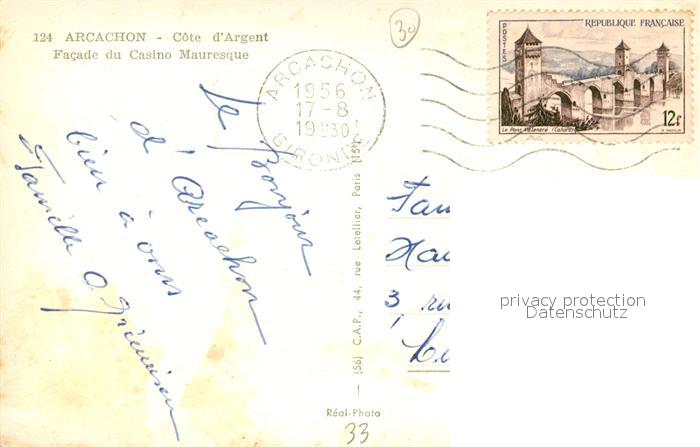 124 ARCACHON - Côte d'Argent
Façade du Casino Mauresque
30
ARCACHON
1956
17-8
1930
GIRONDE
POSTES
REPUBLIQUE FRANÇAISE
12f
Le Pont Valentré (Cahors)
le Bonjour
d'Arcachon
bien à vous
Famille
(56) C.A.P., 44, rue Letellier, Paris (15e)
Fam
3 ru
privacy protection
Datenschutz
Réal-Photo
33